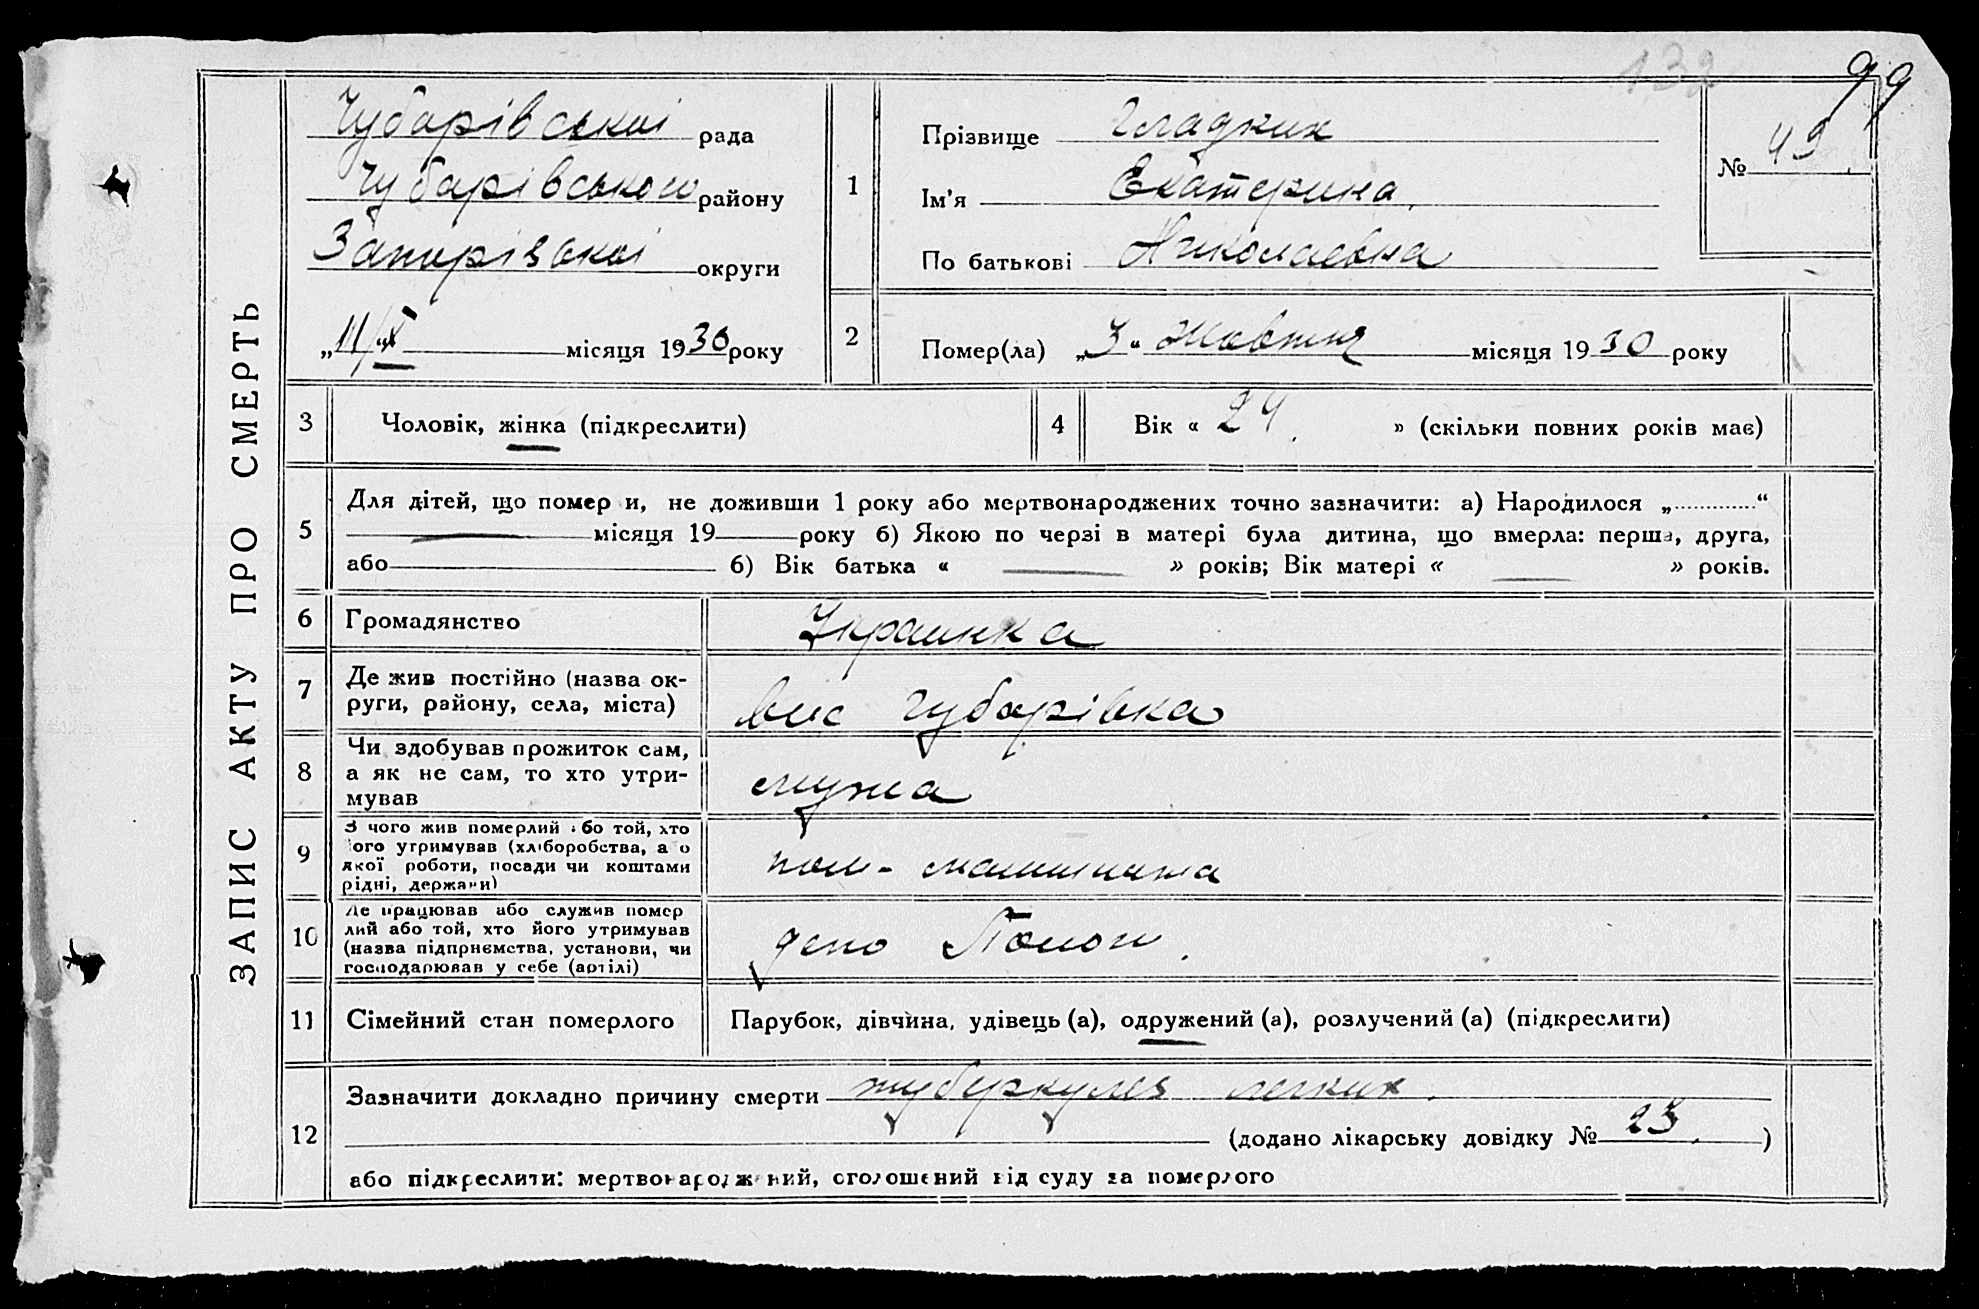 132
99
ЗАПИС АКТУ ПРО СМЕРТЬ
Чубарівської рада
Чубарівського району
Запорізької округи
„11/X місяця 1930 року
1
Прізвище Гладких
Ім'я Екатерина
По батькові Николаевна
№ 49
2
Помер(ла) „3“ жовтня місяця 1930 року
3
Чоловік, жінка (підкреслити)
4
Вік « 24 » (скільки повних років має)
5
Для дітей, що помер и, не доживши 1 року або мертвонароджених точно зазначити: а) Народилося „ “
місяця 19 року б) Якою по черзі в матері була дитина, що вмерла: перша, друга,
або б) Вік батька « » років; Вік матері « » років.
6
Громадянство
Украинка
7
Де жив постійно (назва ок-
руги, району, села, міста)
вис Чубарівка
8
Чи здобував прожиток сам,
а як не сам, то хто утри-
мував
мужа
9
З чого жив померлий або той, хто
його утримував (хліборобства, а о
якої роботи, посади чи коштами
рідні, держави)
пом-машиниста
10
Де працював або служив помер
лий або той, хто його утримував
(назва підприємства, установи, чи
господарював у себе (артілі)
депо Пологи.
11
Сімейний стан померлого
Парубок, дівчина, удівець (а), одружений (а), розлучений (а) (підкреслити)
12
Зазначити докладно причину смерти туберкулез легких.
(додано лікарську довідку № 23. )
або підкреслити: мертвонароджений, оголошений від суду за померлого